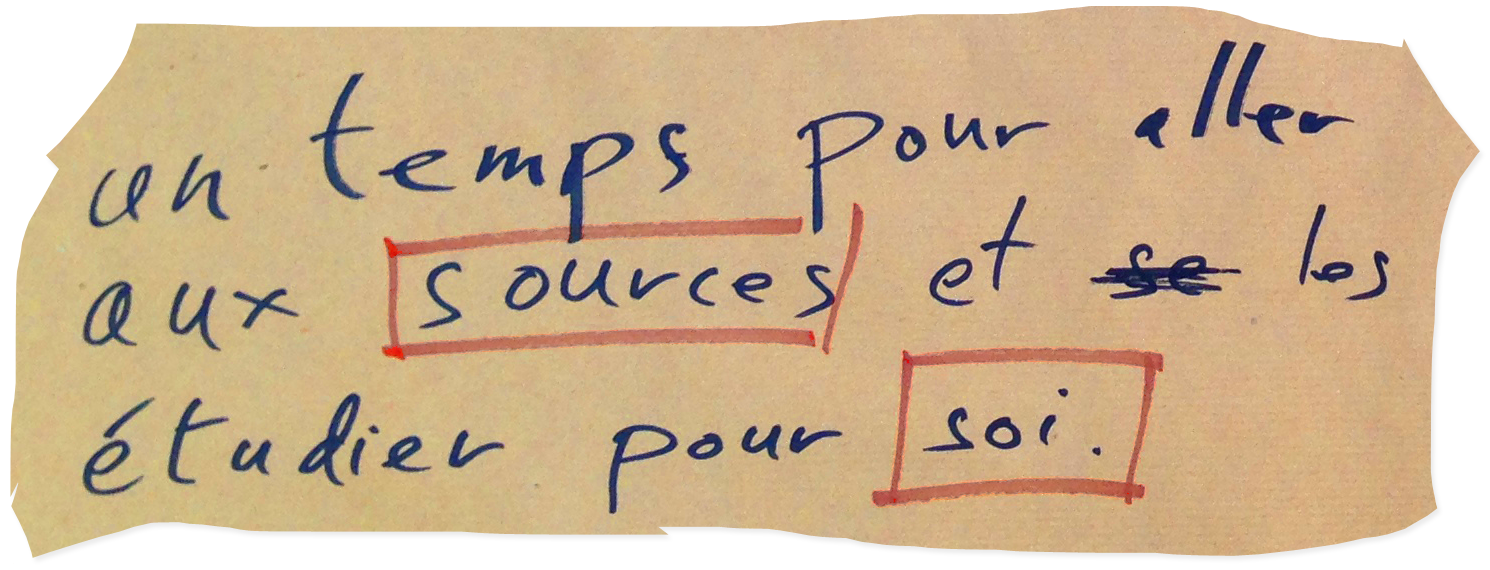 un temps pour aller
aux sources et se les
étudier pour soi.